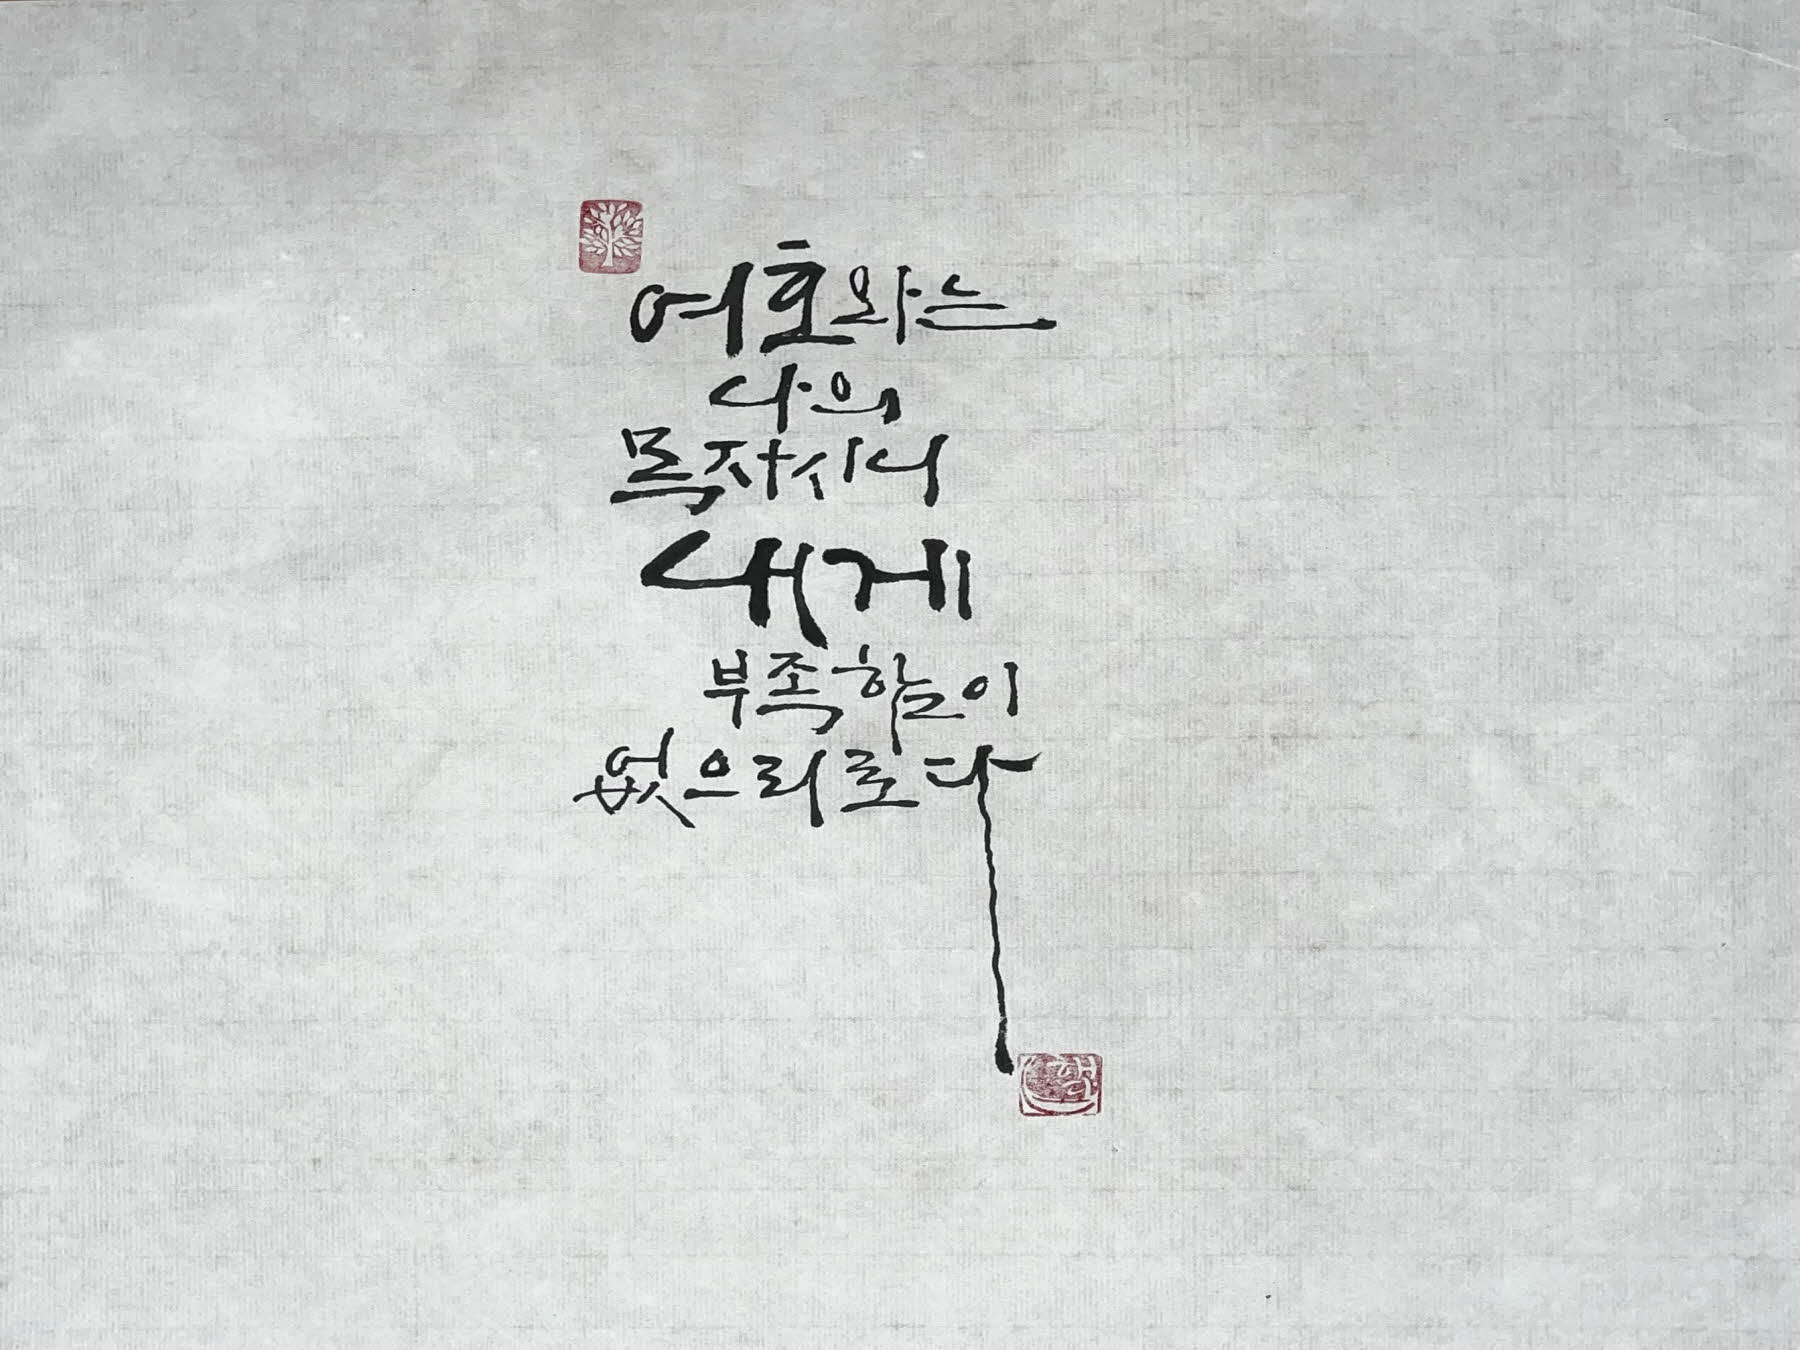 여호와는
나의
목자시니
내게
부족함이
없으리로다